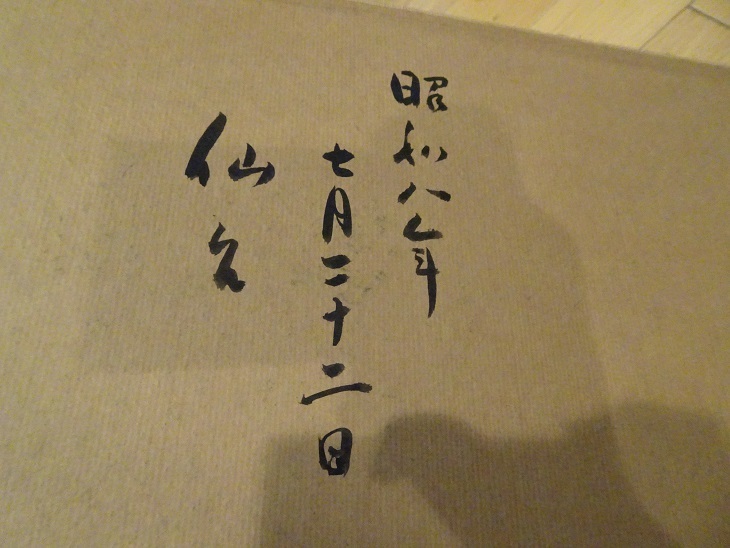 昭和八年
七月二十二日
仙